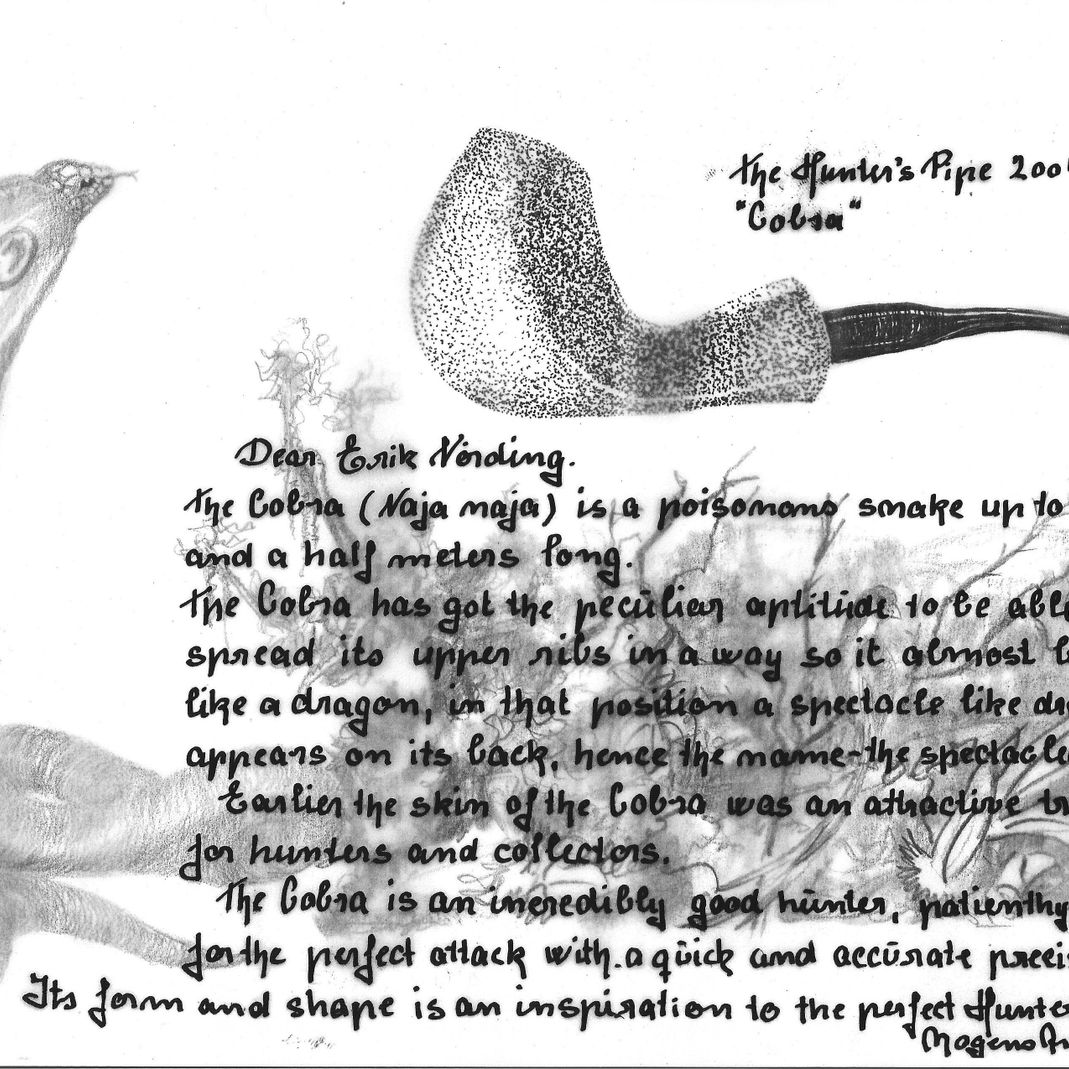 The Hunter's Pipe 200
"Cobra"
Dear Erik Nörding.
The Cobra (Naja naja) is a poisonons snake up to
and a half meters long.
The Cobra has got the peculiar aptitude to be abl
spread its upper ribs in a way so it almost l
like a dragon, in that position a spectacle like dr
appears on its back, hence the name-the spectacle
Earlier the skin of the Cobra was an attractive tr
for hunters and collectors.
The Cobra is an incredibly good hunter, patienthy
for the perfect attack with a quick and accurate preci
Its form and shape is an inspiration to the perfect Hunter
Mogens